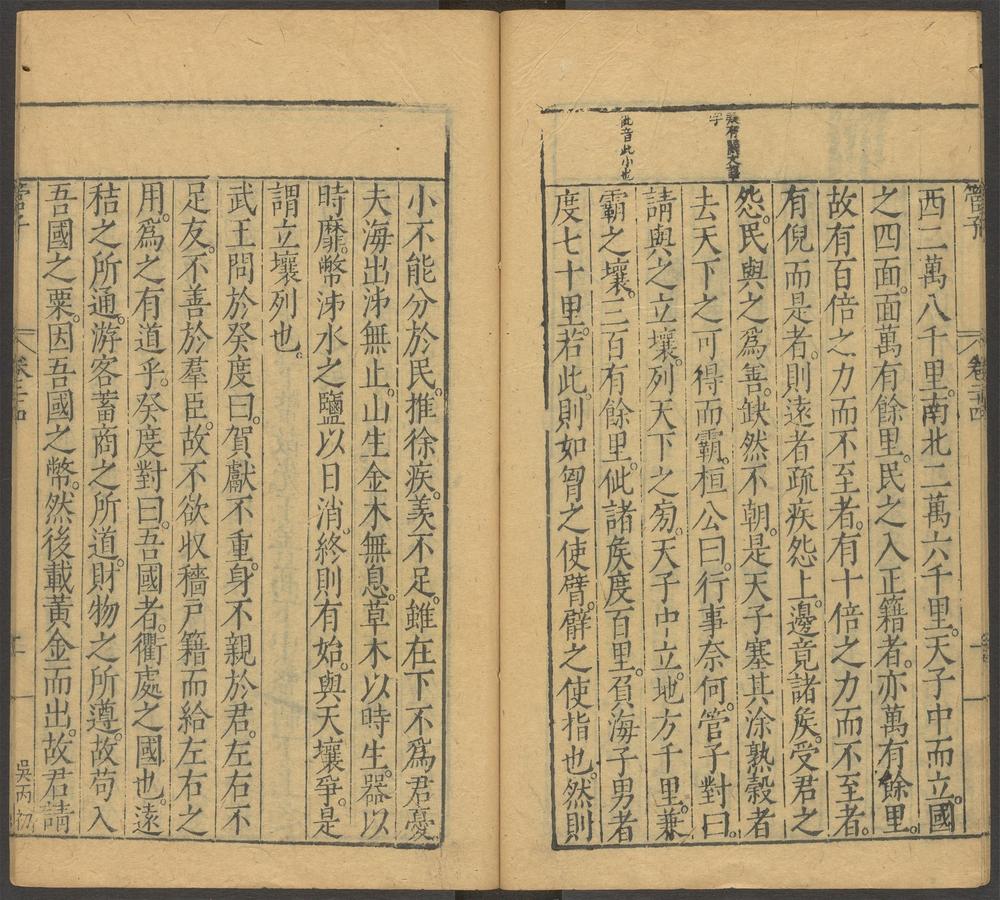 管子
卷二十四
疑有闕文誤
字
西二萬八千里。南北二萬六千里。天子中而立。國
之四面。面萬有餘里。民之入正籍者。亦萬有餘里。
故有百倍之力而不至者。有十倍之力而不至者。
有倪而是者。則遠者疏。疾怨上。邊竟諸矦。受君之
怨。民與之爲善。缺然不朝。是天子塞其涂。熟糓者
去。天下之可得而霸。桓公曰。行事奈何。管子對曰。
請與之立壤。列天下之㫄。天子中立。地方千里。兼
㐌音此小也
霸之壤。三百有餘里。佌諸矦度百里。負海子男者
度七十里。若此。則如胷之使臂。臂之使指也。然則
小不能分於民。推徐疾。羡不足。雖在下不爲君憂。
夫海出泲無止。山生金木無息。草木以時生。器以
時靡。幣泲水之鹽以日消。終則有始。與天壤爭。是
謂立壤列也。
武王問於癸度曰。賀獻不重。身不親於君。左右不
足。友。不善於羣臣。故不欲收穡戶籍而給左右之
用。爲之有道乎。癸度對曰。吾國者。衢處之國也。遠
秸之所通。游客蓄商之所道。財物之所遵。故苟入
吾國之粟。因吾國之幣。然後載黃金而出。故君請
管子
卷二十四
吳丙初